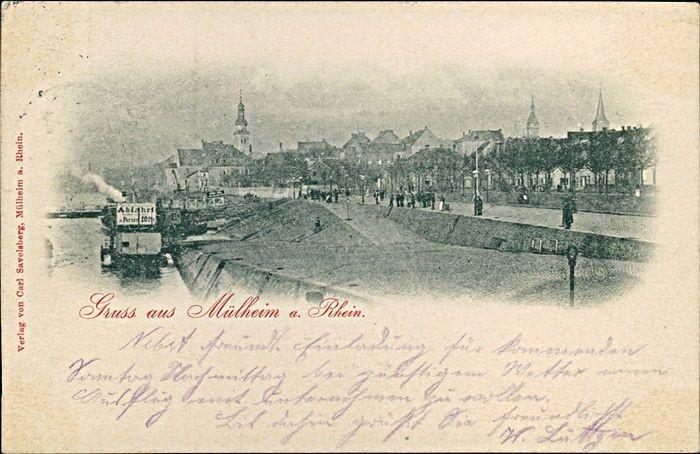 Verlag von Carl Savelsberg, Mülheim a. Rhein.
Abfahrt
a Person 10 Pf
Gruss aus Mülheim a. Rhein.
Nebst freundl. Einladung für kommenden
Sonntag Nachmittag bei günstigem Wetter einen
Ausflug mit unternehmen zu wollen.
Bis dahin grüßt Sie freundlichst